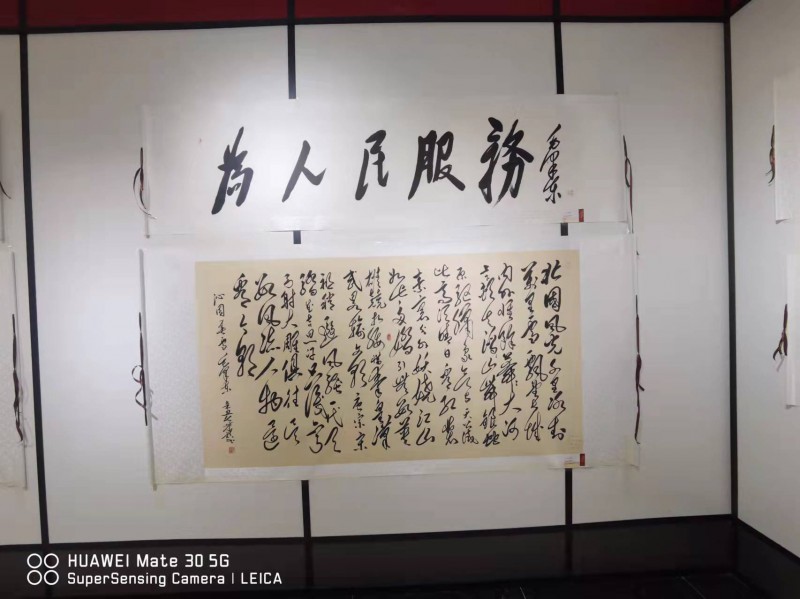 為人民服務
毛泽东
北國風光千里冰封
萬里雪飘望长城
内外惟馀莽大河
滔山舞銀蛇
原驰蜡象欲与天公
比高须晴日看红装
素裹分外妖娆江山
如此多娇引無数英
雄競折腰惜秦皇漢
武略输文采唐宗宋
祖稍逊風騷一代天
骄成吉思汗只识弯弓
射大雕俱往矣
数風流人物还
看今朝
沁园春雪 毛泽东
HUAWEI Mate 30 5G
SuperSensing Camera | LEICA